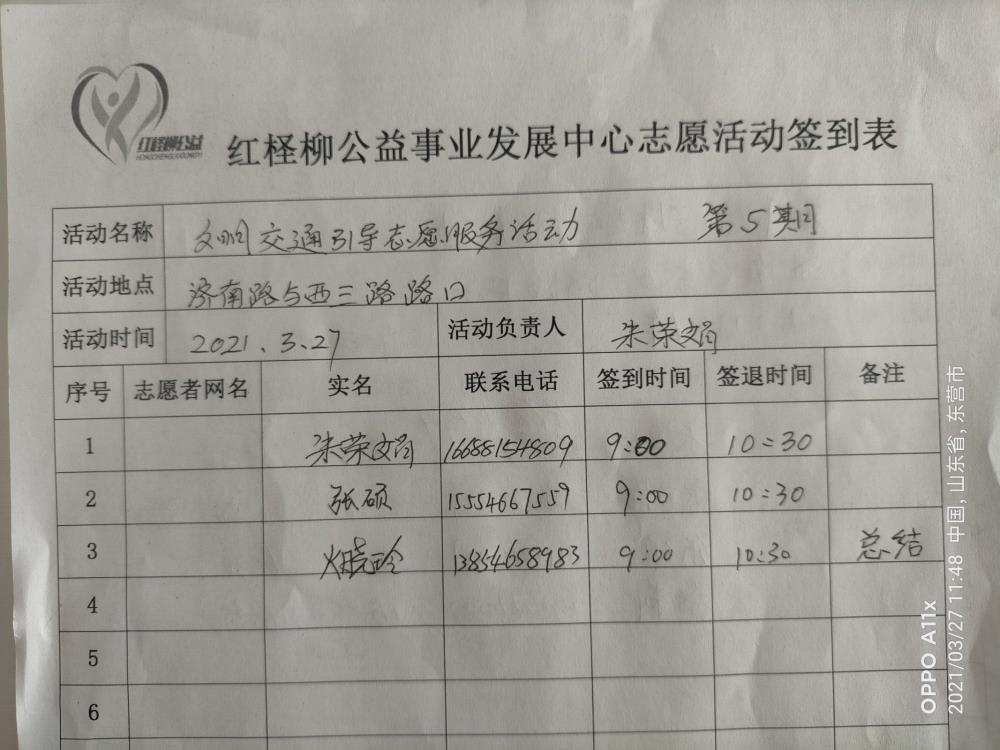 红柽柳公益
HONGCHENGLIUGONGYI
红柽柳公益事业发展中心志愿活动签到表
活动名称 文明交通引导志愿服务活动 第5期
活动地点 济南路与西三路路口
活动时间 2021.3.27 活动负责人 朱荣娟
序号 志愿者网名 实名 联系电话 签到时间 签退时间 备注
1 朱荣娟 16688154809 9:00 10:30
2 张硕 15554667559 9:00 10:30
3 晓玲 13854658983 9:00 10:30 总结
4
5
6
OPPO A11x
2021/03/27 11:48 中国, 山东省, 东营市